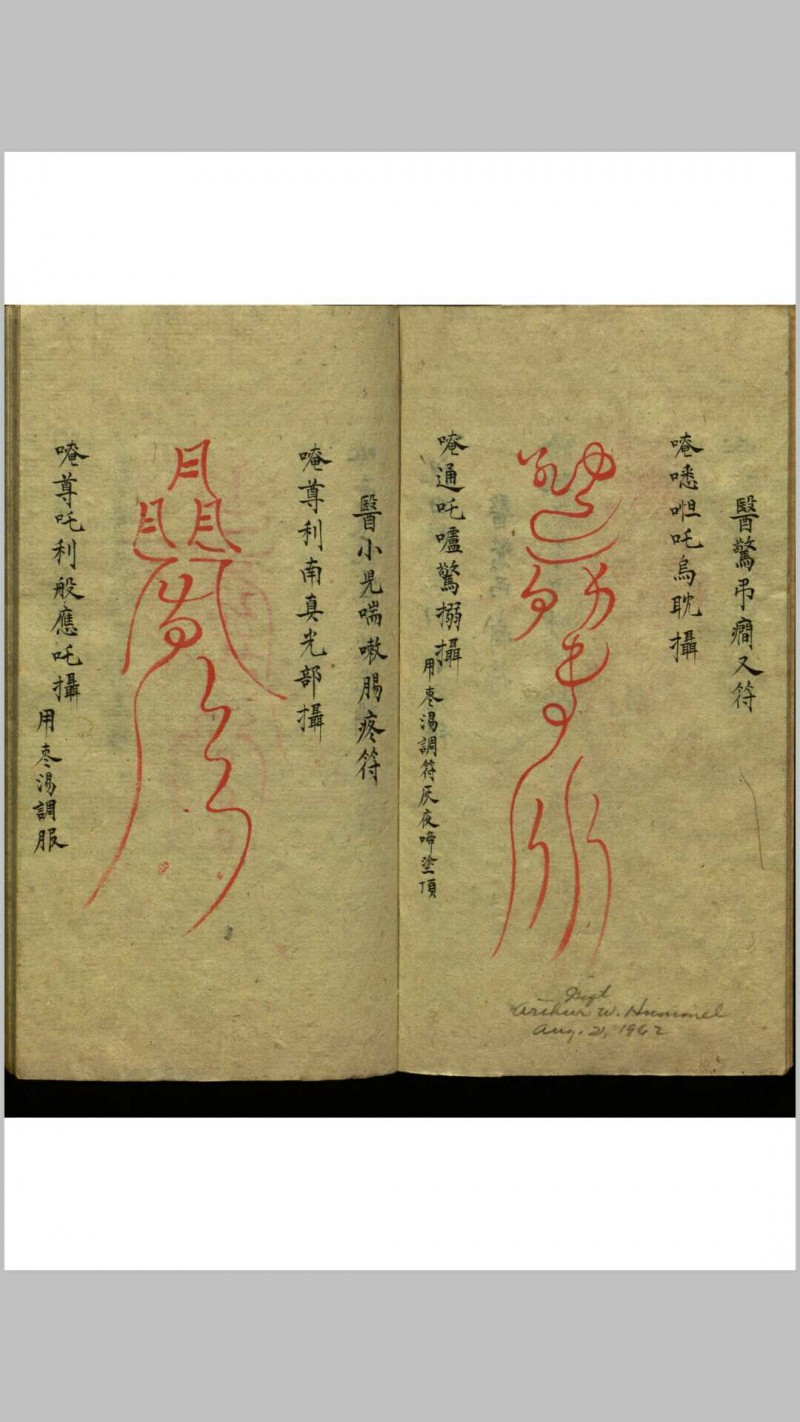 醫驚弔癇又符
唵㗭呾吒烏耽攝
唵通吒嚧驚搦攝
用枣湯調符灰夜啼塗頂
醫小児喘嗽腸疼符
唵尊利南真光部攝
唵尊吒利般應吒攝
用枣湯調服
Gift
Arthur W. Hummel
Aug. 21, 1962